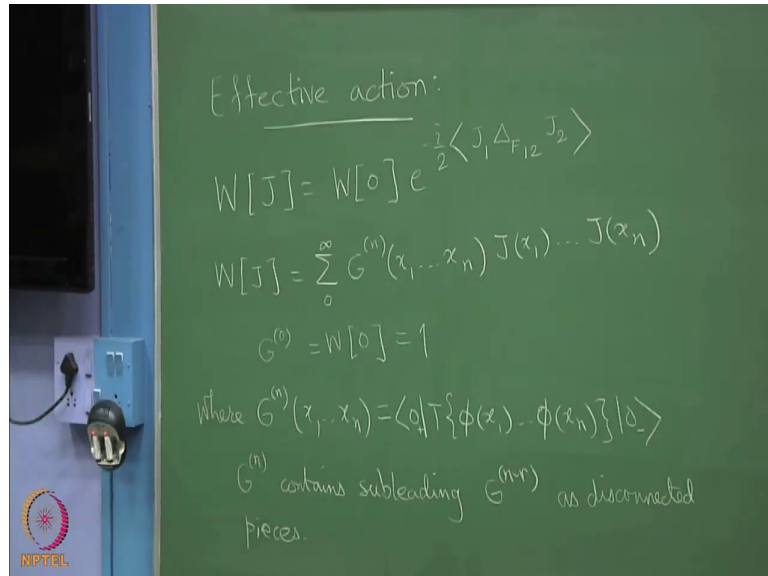 Effective action:
W[J] = W[0] e^{-\frac{i}{2}⟨J_1 Δ_{F12} J_2⟩}
W[J] = \sum_0^∞ G^{(n)}(x_1...x_n) J(x_1)... J(x_n)
G^{(0)} = W[0] = 1
where G^{(n)}(x_1...x_n) = ⟨0_+|T{φ(x_1)..φ(x_n)}|0_-⟩
G^{(n)} contains subleading G^{(n-r)} as disconnected
pieces.
NPTEL